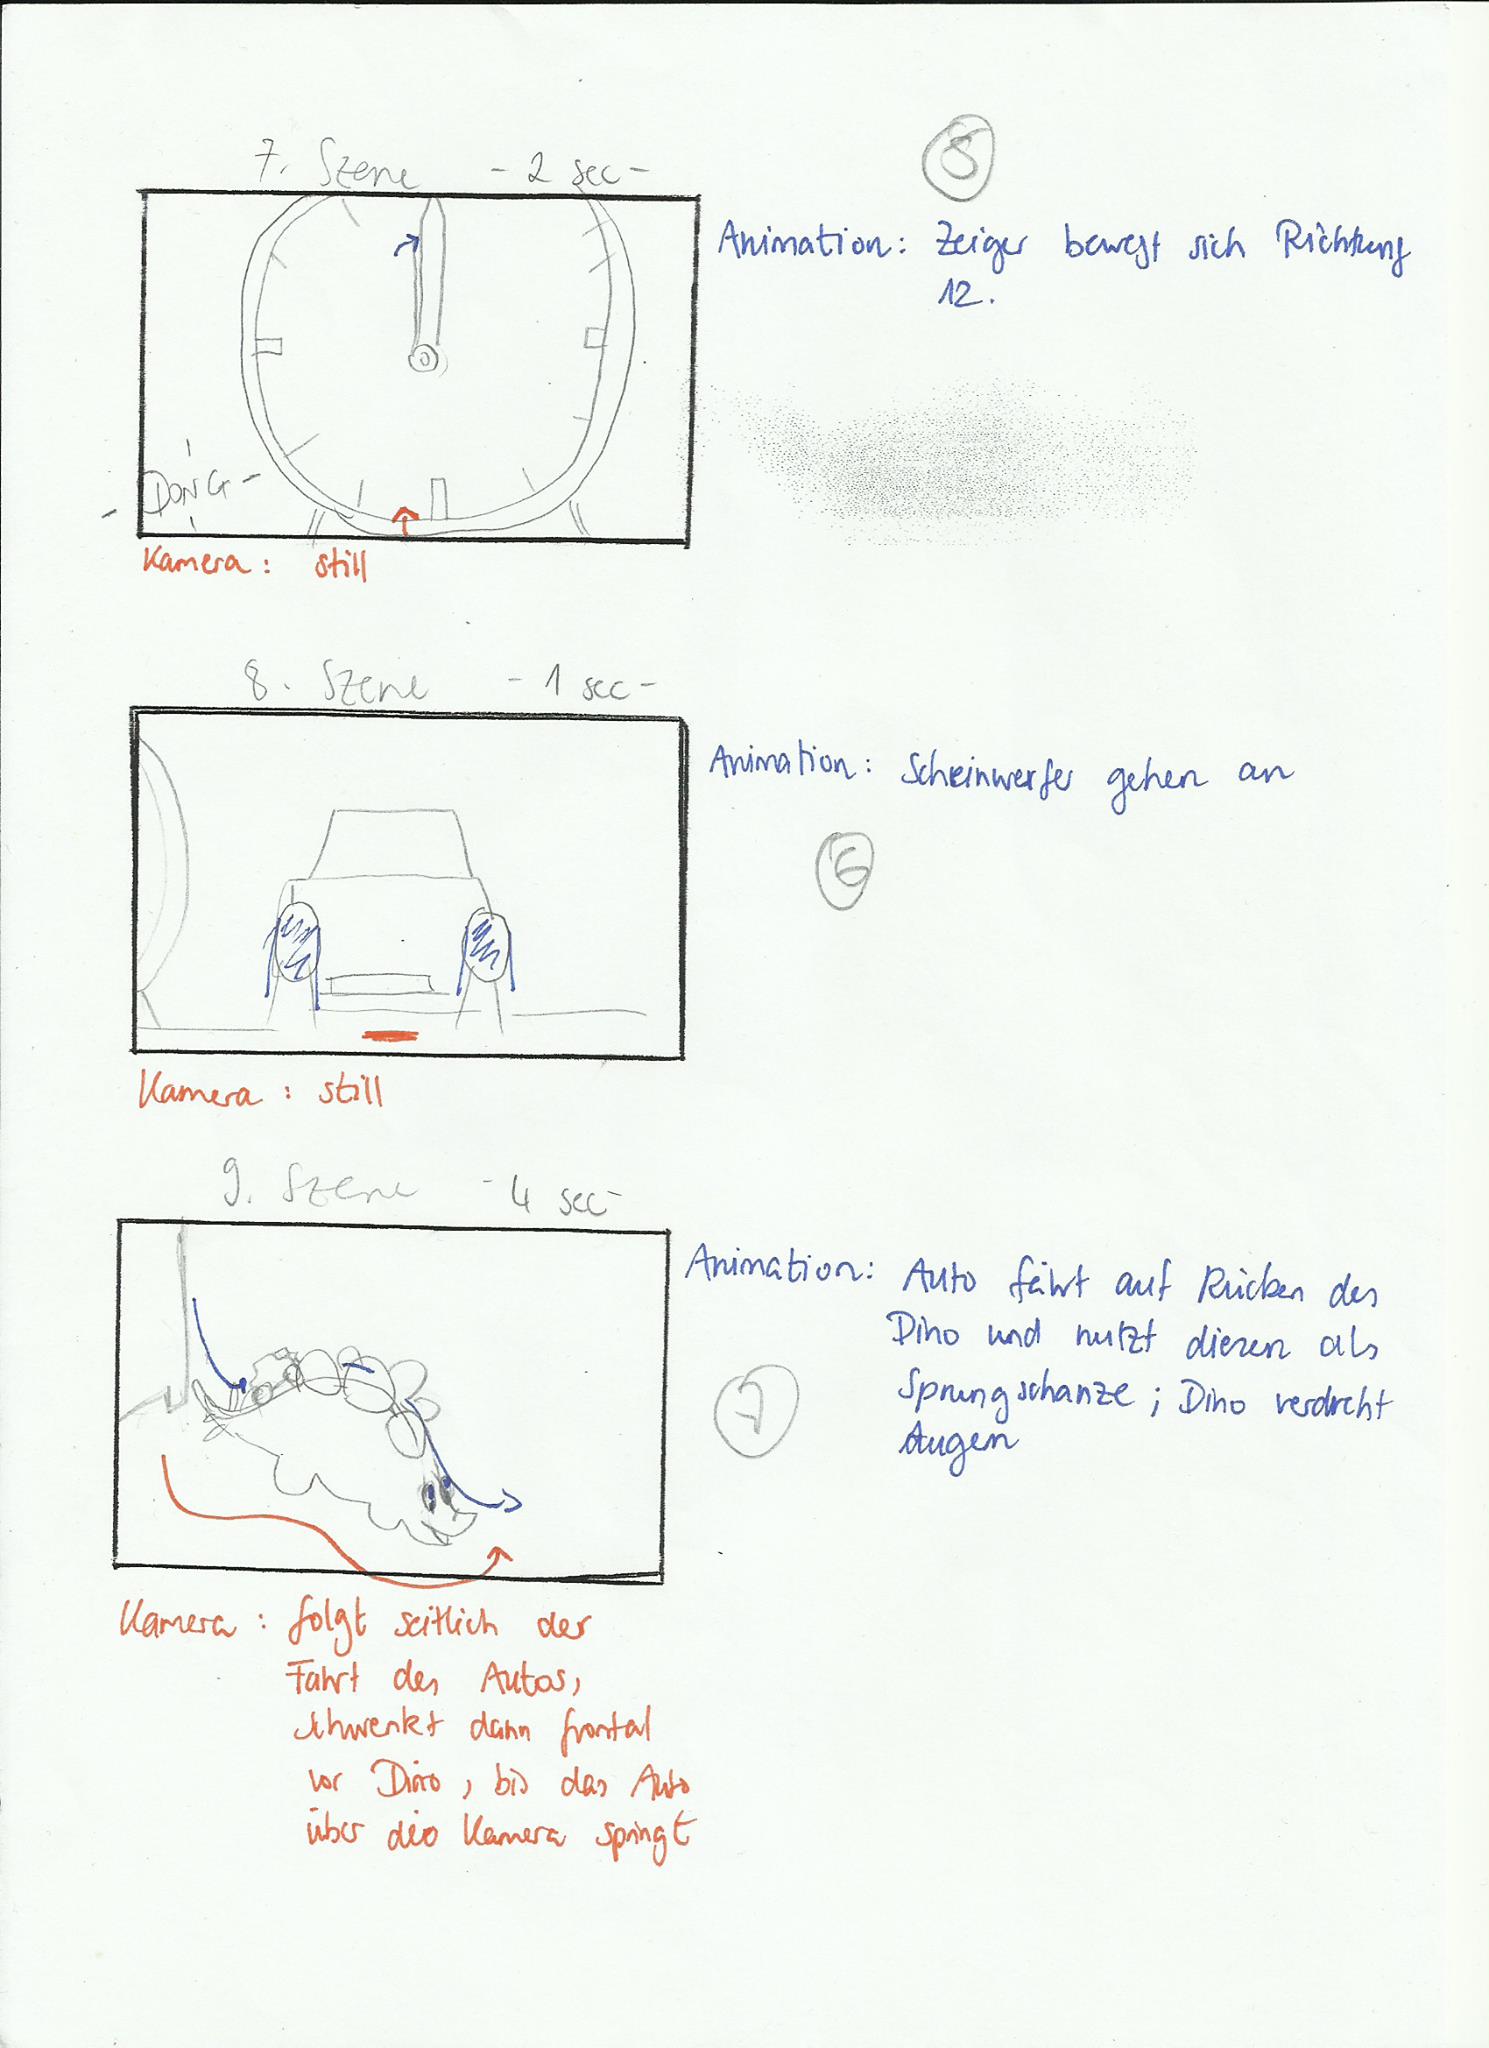 7. Szene - 2 sec -
5
Animation: Zeiger bewegt sich Richtung
12.
DONG
Kamera: still
8. Szene - 1 sec -
Animation: Scheinwerfer gehen an
6
Kamera: still
9. Szene - 4 sec -
Animation: Auto fährt auf Rücken des
Dino und nutzt diesen als
Sprungschanze; Dino verdreht
Augen
7
Kamera: folgt seitlich der
Fahrt des Autos,
schwenkt dann frontal
vor Dino, bis das Auto
über die Kamera springt